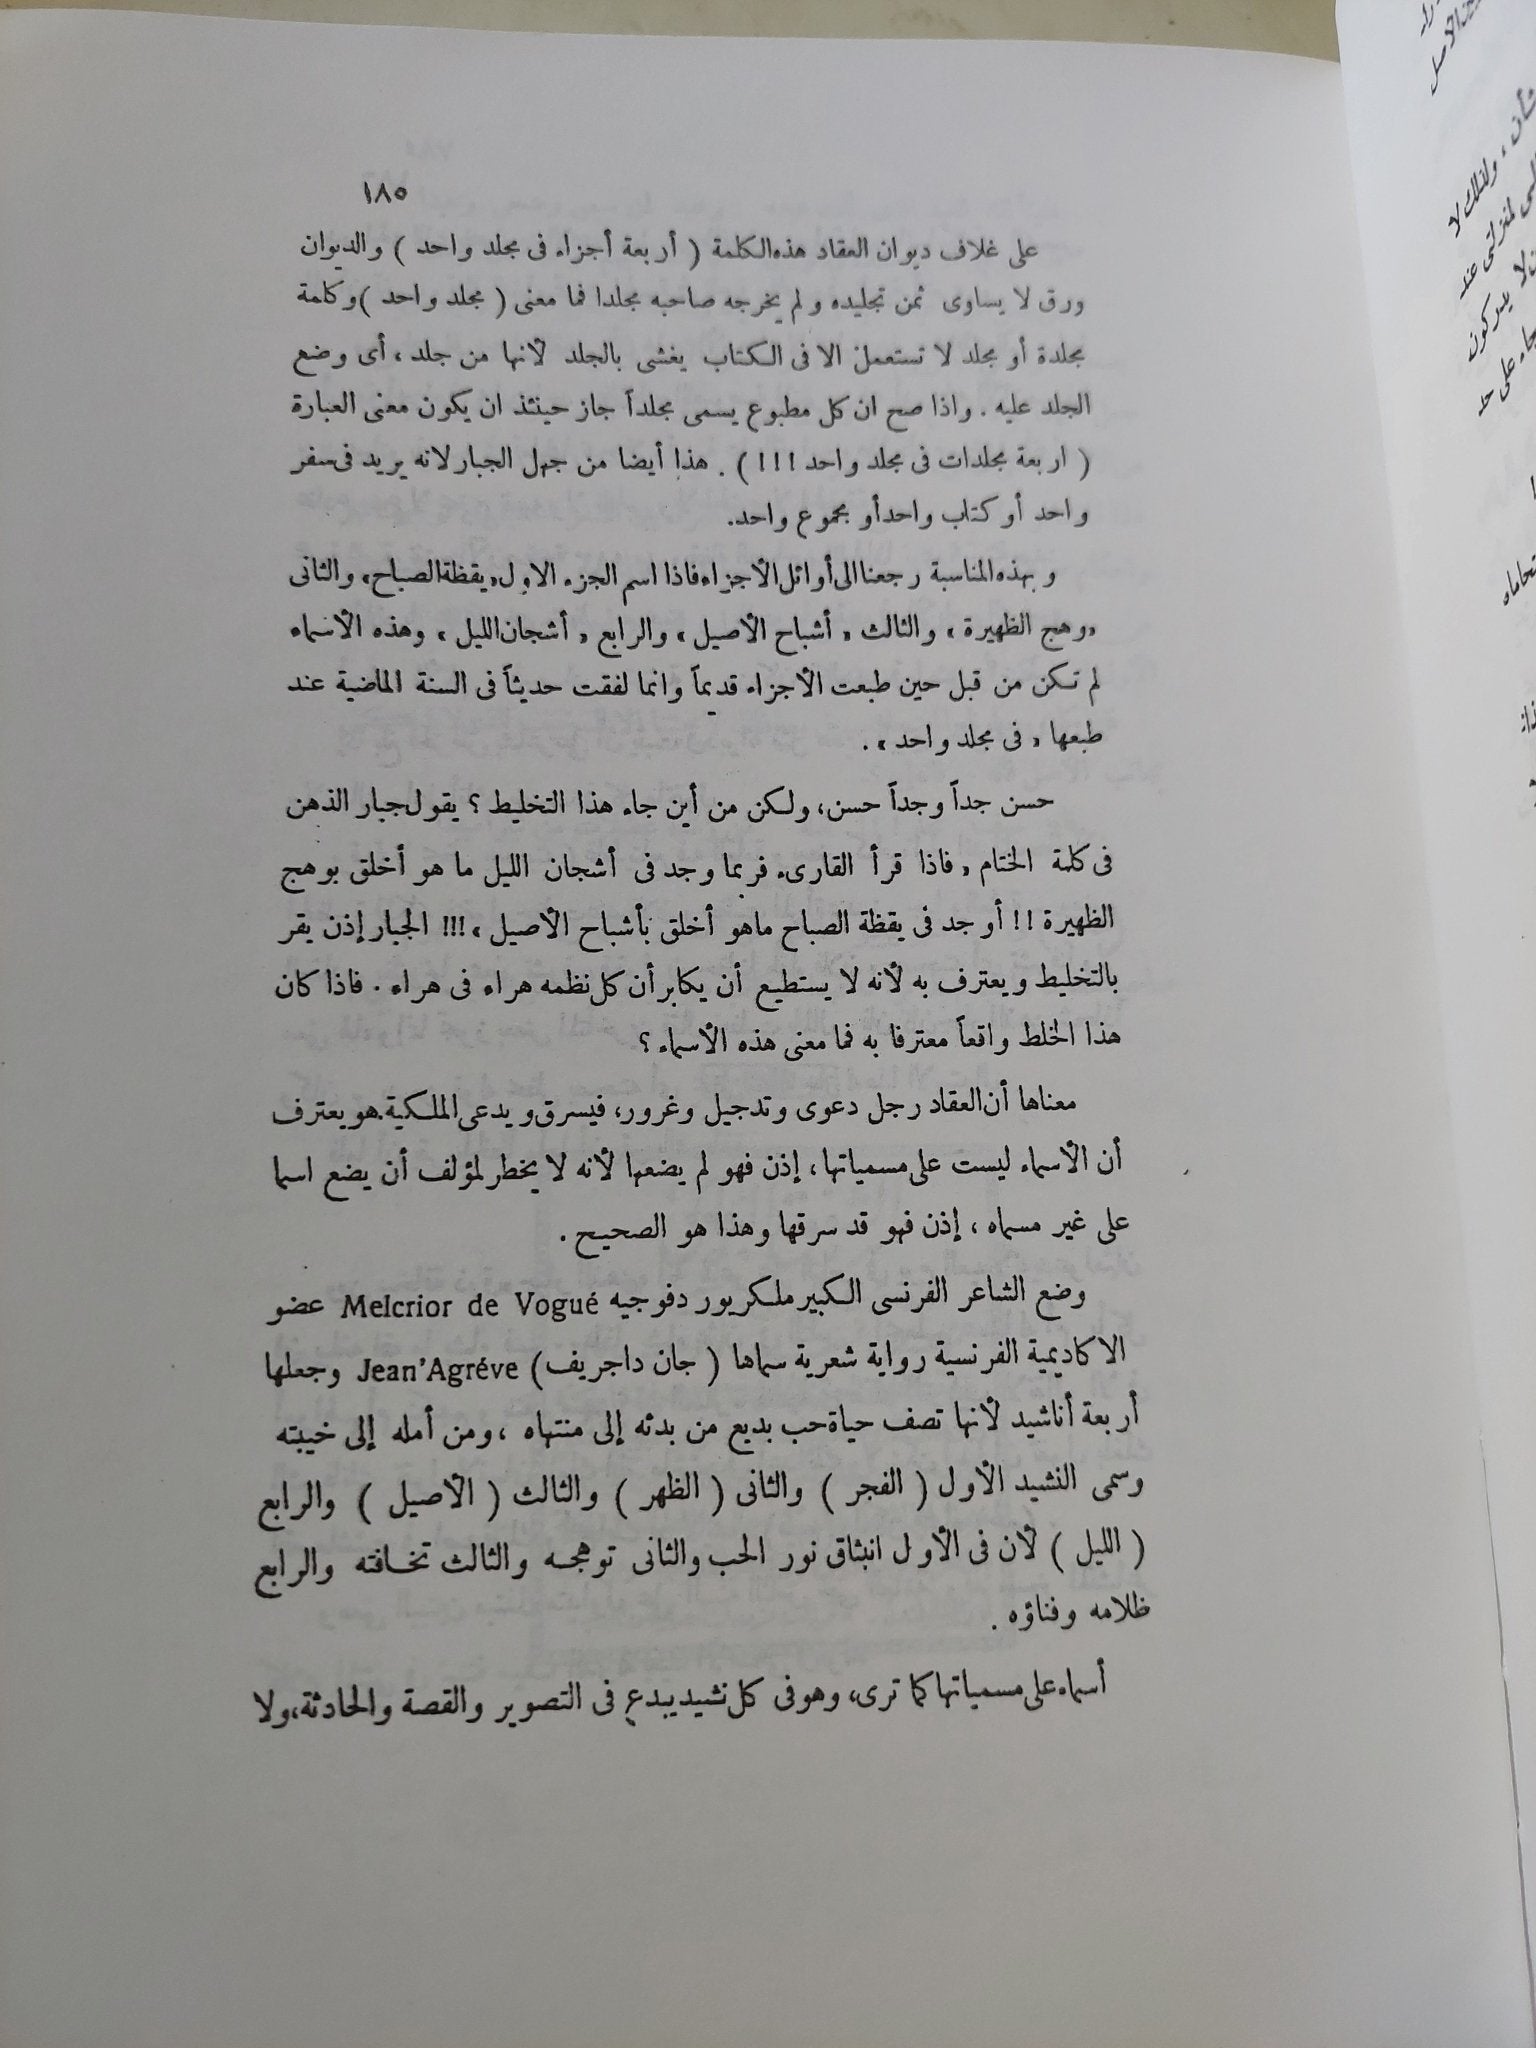 ١٨٥
على غلاف ديوان العقاد هذه الكلمة ( أربعة أجزاء فى مجلد واحد ) والديوان
ورق لا يساوى ثمن تجليده ولم يخرجه صاحبه مجلدا فما معنى ( مجلد واحد ) وكلمة
مجلدة أو مجلد لا تستعمل الا فى الكتاب يغشى بالجلد لأنها من جلد ، أى وضع
الجلد عليه . واذا صح ان كل مطبوع يسمى مجلداً جاز حينئذ ان يكون معنى العبارة
( اربعة مجلدات فى مجلد واحد !!! ) . هذا أيضا من جهل الجبار لانه يريد فى سفر
واحد أو كتاب واحد أو مجموع واحد.
وبهذه المناسبة رجعنا الى أوائل الأجزاء فاذا اسم الجزء الاول «يقظة الصباح» والثانى
«وهج الظهيرة » والثالث « أشباح الأصيل » والرابع « أشجان الليل » وهذه الأسماء
لم تكن من قبل حين طبعت الأجزاء قديماً وانما لفقت حديثاً فى السنة الماضية عند
طبعها « فى مجلد واحد » .
حسن جداً وجداً حسن، ولكن من أين جاء هذا التخليط ؟ يقول جبار الذهن
فى كلمة الختام « فاذا قرأ القارىء فربما وجد فى أشجان الليل ما هو أخلق بوهج
الظهيرة !! أو جد فى يقظة الصباح ماهو أخلق بأشباح الأصيل » !!! الجبار إذن يقر
بالتخليط ويعترف به لأنه لا يستطيع أن يكابر أن كل نظمه هراء فى هراء . فاذا كان
هذا الخلط واقعاً معترفا به فما معنى هذه الأسماء ؟
معناها أن العقاد رجل دعوى وتدجيل وغرور، فيسرق ويدعى الملكية.هو يعترف
أن الأسماء ليست على مسمياتها ، إذن فهو لم يضعها لأنه لا يخطر لمؤلف أن يضع اسما
على غير مسماه ، إذن فهو قد سرقها وهذا هو الصحيح .
وضع الشاعر الفرنسى الكبير ملكريور دفوجيه Melcrior de Vogué عضو
الاكاديمية الفرنسية رواية شعرية سماها ( جان داجريف) Jean'Agréve وجعلها
أربعة أناشيد لأنها تصف حياة حب بديع من بدئه إلى منتهاه ، ومن أمله إلى خيبته
وسمى النشيد الأول ( الفجر ) والثانى ( الظهر ) والثالث ( الأصيل ) والرابع
( الليل ) لأن فى الأول انبثاق نور الحب والثانى توهجه والثالث تخافته والرابع
ظلامه وفناؤه .
أسماء على مسمياتها كما ترى، وهو فى كل نشيد يبدع فى التصوير والقصة والحادثة، ولا